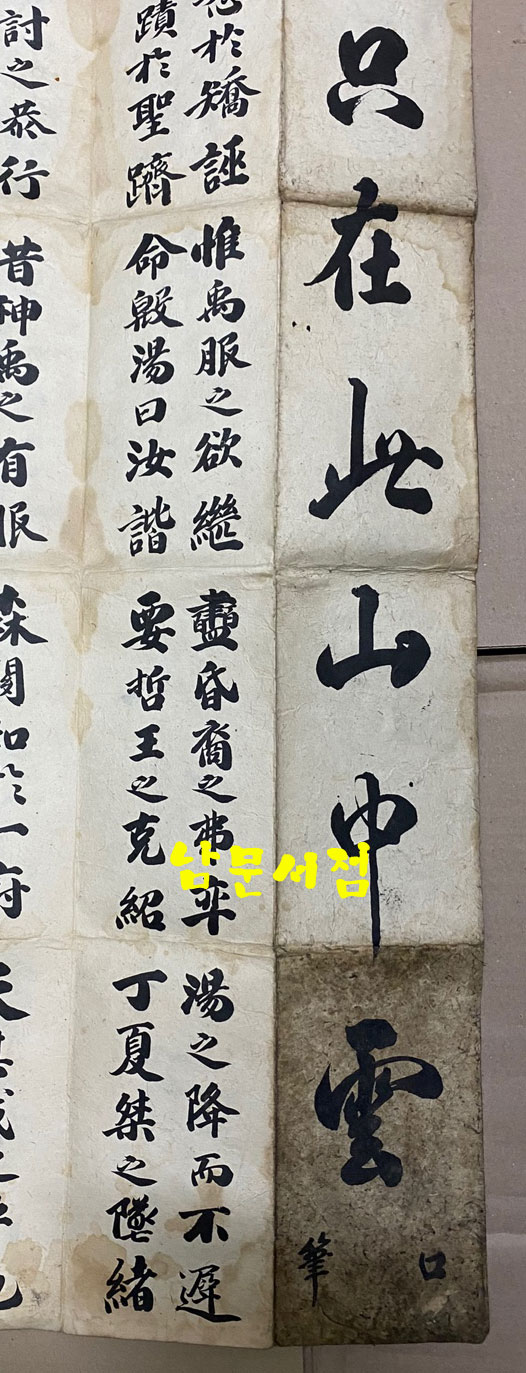 只在此山中雲
口
筆
於矯誣
惟禹服之欲繼
盡昏裔之弗率
湯之降而不遲
蹟於聖躋
命殷湯曰汝諧
要哲王之克紹
丁夏桀之墜緒
討之恭行
昔神禹之有服
남문서점